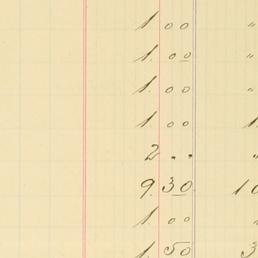 1. 00 "
1. 00 "
1. 00 "
1. 00 1.
2 " " "
9. 30 10
1. 00 "
1. 50 3